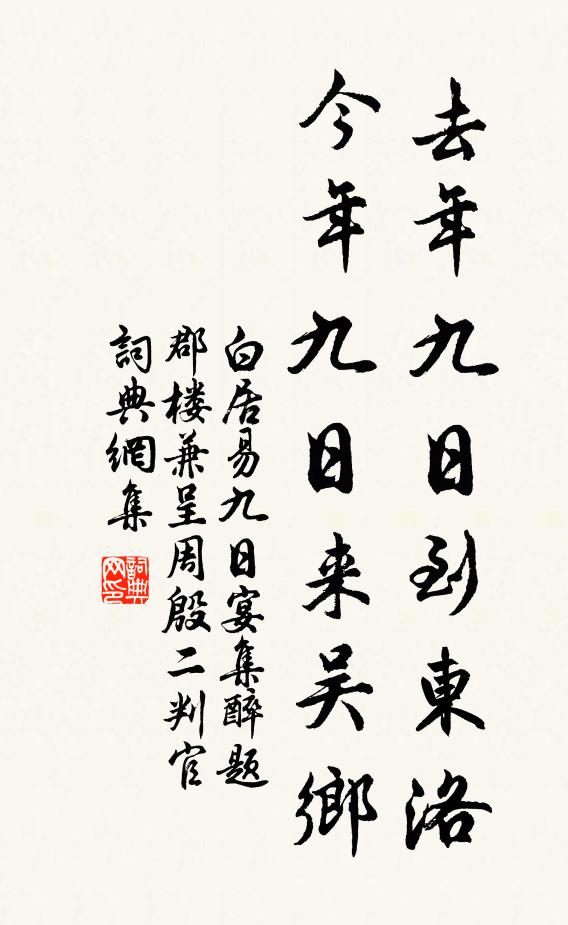 去年九日到東洛
今年九日来吴鄉
白居易九日宴集醉题
郡楼兼呈周殷二判官
詞典網集
詞典网印